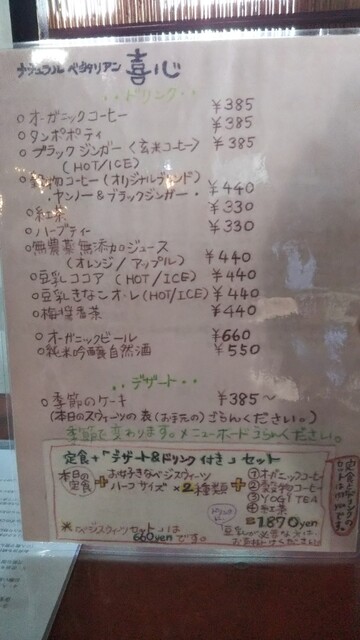 ナチュラル ベジタリアン 喜心
・・ドリンク・・
○ オーガニックコーヒー ¥385
○ タンポポティ ¥385
○ ブラックジンガー〈玄米コーヒー〉 ¥385
(HOT/ICE)
○ 穀物コーヒー(オリジナルブレンド)
・ヤンノー&ブラックジンガー・ ¥440
○ 紅茶 ¥330
○ ハーブティー ¥330
○ 無農薬無添加ジュース
(オレンジ/アップル) ¥440
○ 豆乳ココア (HOT/ICE) ¥440
○ 豆乳きなこオ・レ(HOT/ICE) ¥440
○ 梅醤番茶 ¥440
○ オーガニックビール ¥660
○ 純米吟醸自然酒 ¥550
・・デザート・・
○ 季節のケーキ ¥385〜
(本日のスウィーツの表(お手元の)ごらんください。)
季節で変わります。メニューボードごらんください。
定食+「デザート&ドリンク付き」セット
本日の定食 + お好きなベジスウィーツ ハーフサイズ×2種類 +
①オーガニックコーヒー
②穀物コーヒー
③YOGI TEA
④紅茶
1870yen
※ベジスウィーツセットは
660yenです。